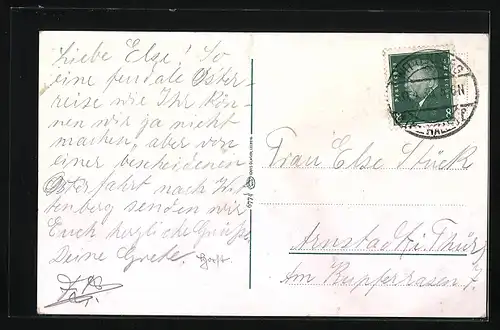 Liebe Else! So
eine feudale Oster-
reise wie Ihr kön-
nen wir ja nicht
machen, aber von
einer bescheidenen
Osterfahrt nach Wit-
tenberg senden wir
Euch herzliche Grüße
Deine Grete.
Frau Else Stück
Arnstadt i. Thür.
Am Kupferrasen 7.